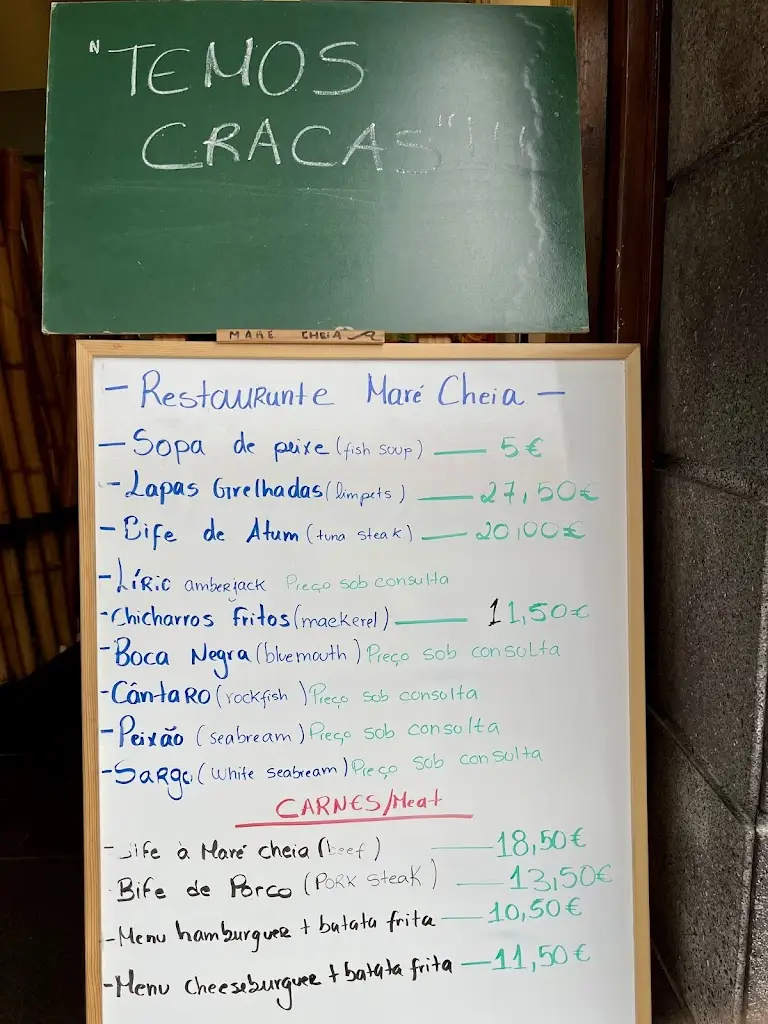 "TEMOS
CRACAS"!!!
MARE CHEIA
- Restaurunte Maré Cheia -
- Sopa de peixe (fish soup) — 5€
- Lapas Grelhadas (limpets) — 27,50€
- Bife de Atum (tuna steak) — 20,00€
- Líric amberjack Preço sob consulta
- Chicharros fritos (maekerel) — 11,50€
- Boca Negra (bluemouth) Preço sob consulta
- CântaRO (rockfish) Preço sob consulta
- Peixão (seabream) Preço sob consulta
- SaRgo (White seabream) Preço sob consulta
CARNES/Meat
- Bife à Maré cheia (beef) — 18,50€
Bife de Porco (PORK steak) — 13,50€
- Menu hamburguer + batata frita — 10,50€
- Menu cheeseburguer + batata frita — 11,50€